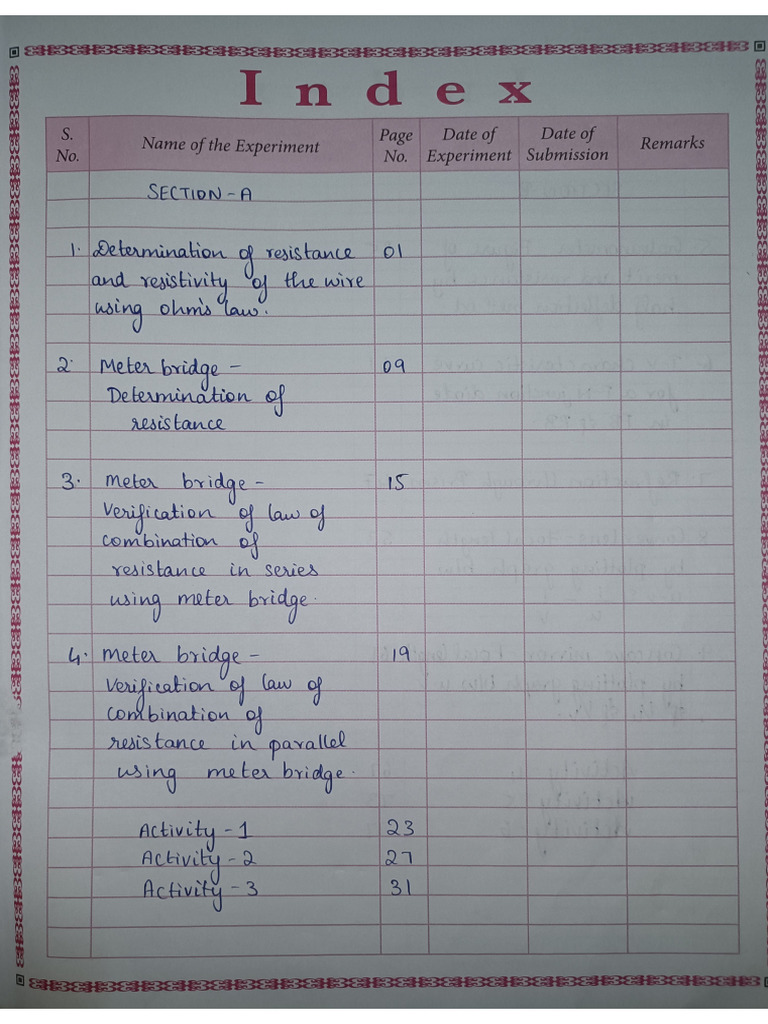 Index
S. No. Name of the Experiment Page No. Date of Experiment Date of Submission Remarks
SECTION - A
1. Determination of resistance 01
and resistivity of the wire
using ohm's law.
2. Meter bridge - 09
Determination of
resistance
3. Meter bridge - 15
Verification of law of
combination of
resistance in series
using meter bridge.
4. Meter bridge - 19
Verification of law of
combination of
resistance in parallel
using meter bridge.
Activity - 1 23
Activity - 2 27
Activity - 3 31